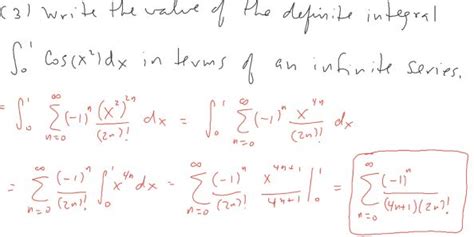 (3) Write the value of the definite integral
∫₀¹ cos(x²)dx in terms of an infinite series.
= ∫₀¹ ∑_{n=0}^{∞} (-1)ⁿ (x²)²ⁿ/(2n)! dx = ∫₀¹ ∑_{n=0}^{∞} (-1)ⁿ x⁴ⁿ/(2n)! dx
= ∑_{n=0}^{∞} (-1)ⁿ/(2n)! ∫₀¹ x⁴ⁿ dx = ∑_{n=0}^{∞} (-1)ⁿ/(2n)! x⁴ⁿ⁺¹/(4n+1) |₀¹ = ∑_{n=0}^{∞} (-1)ⁿ/((4n+1)(2n)!)